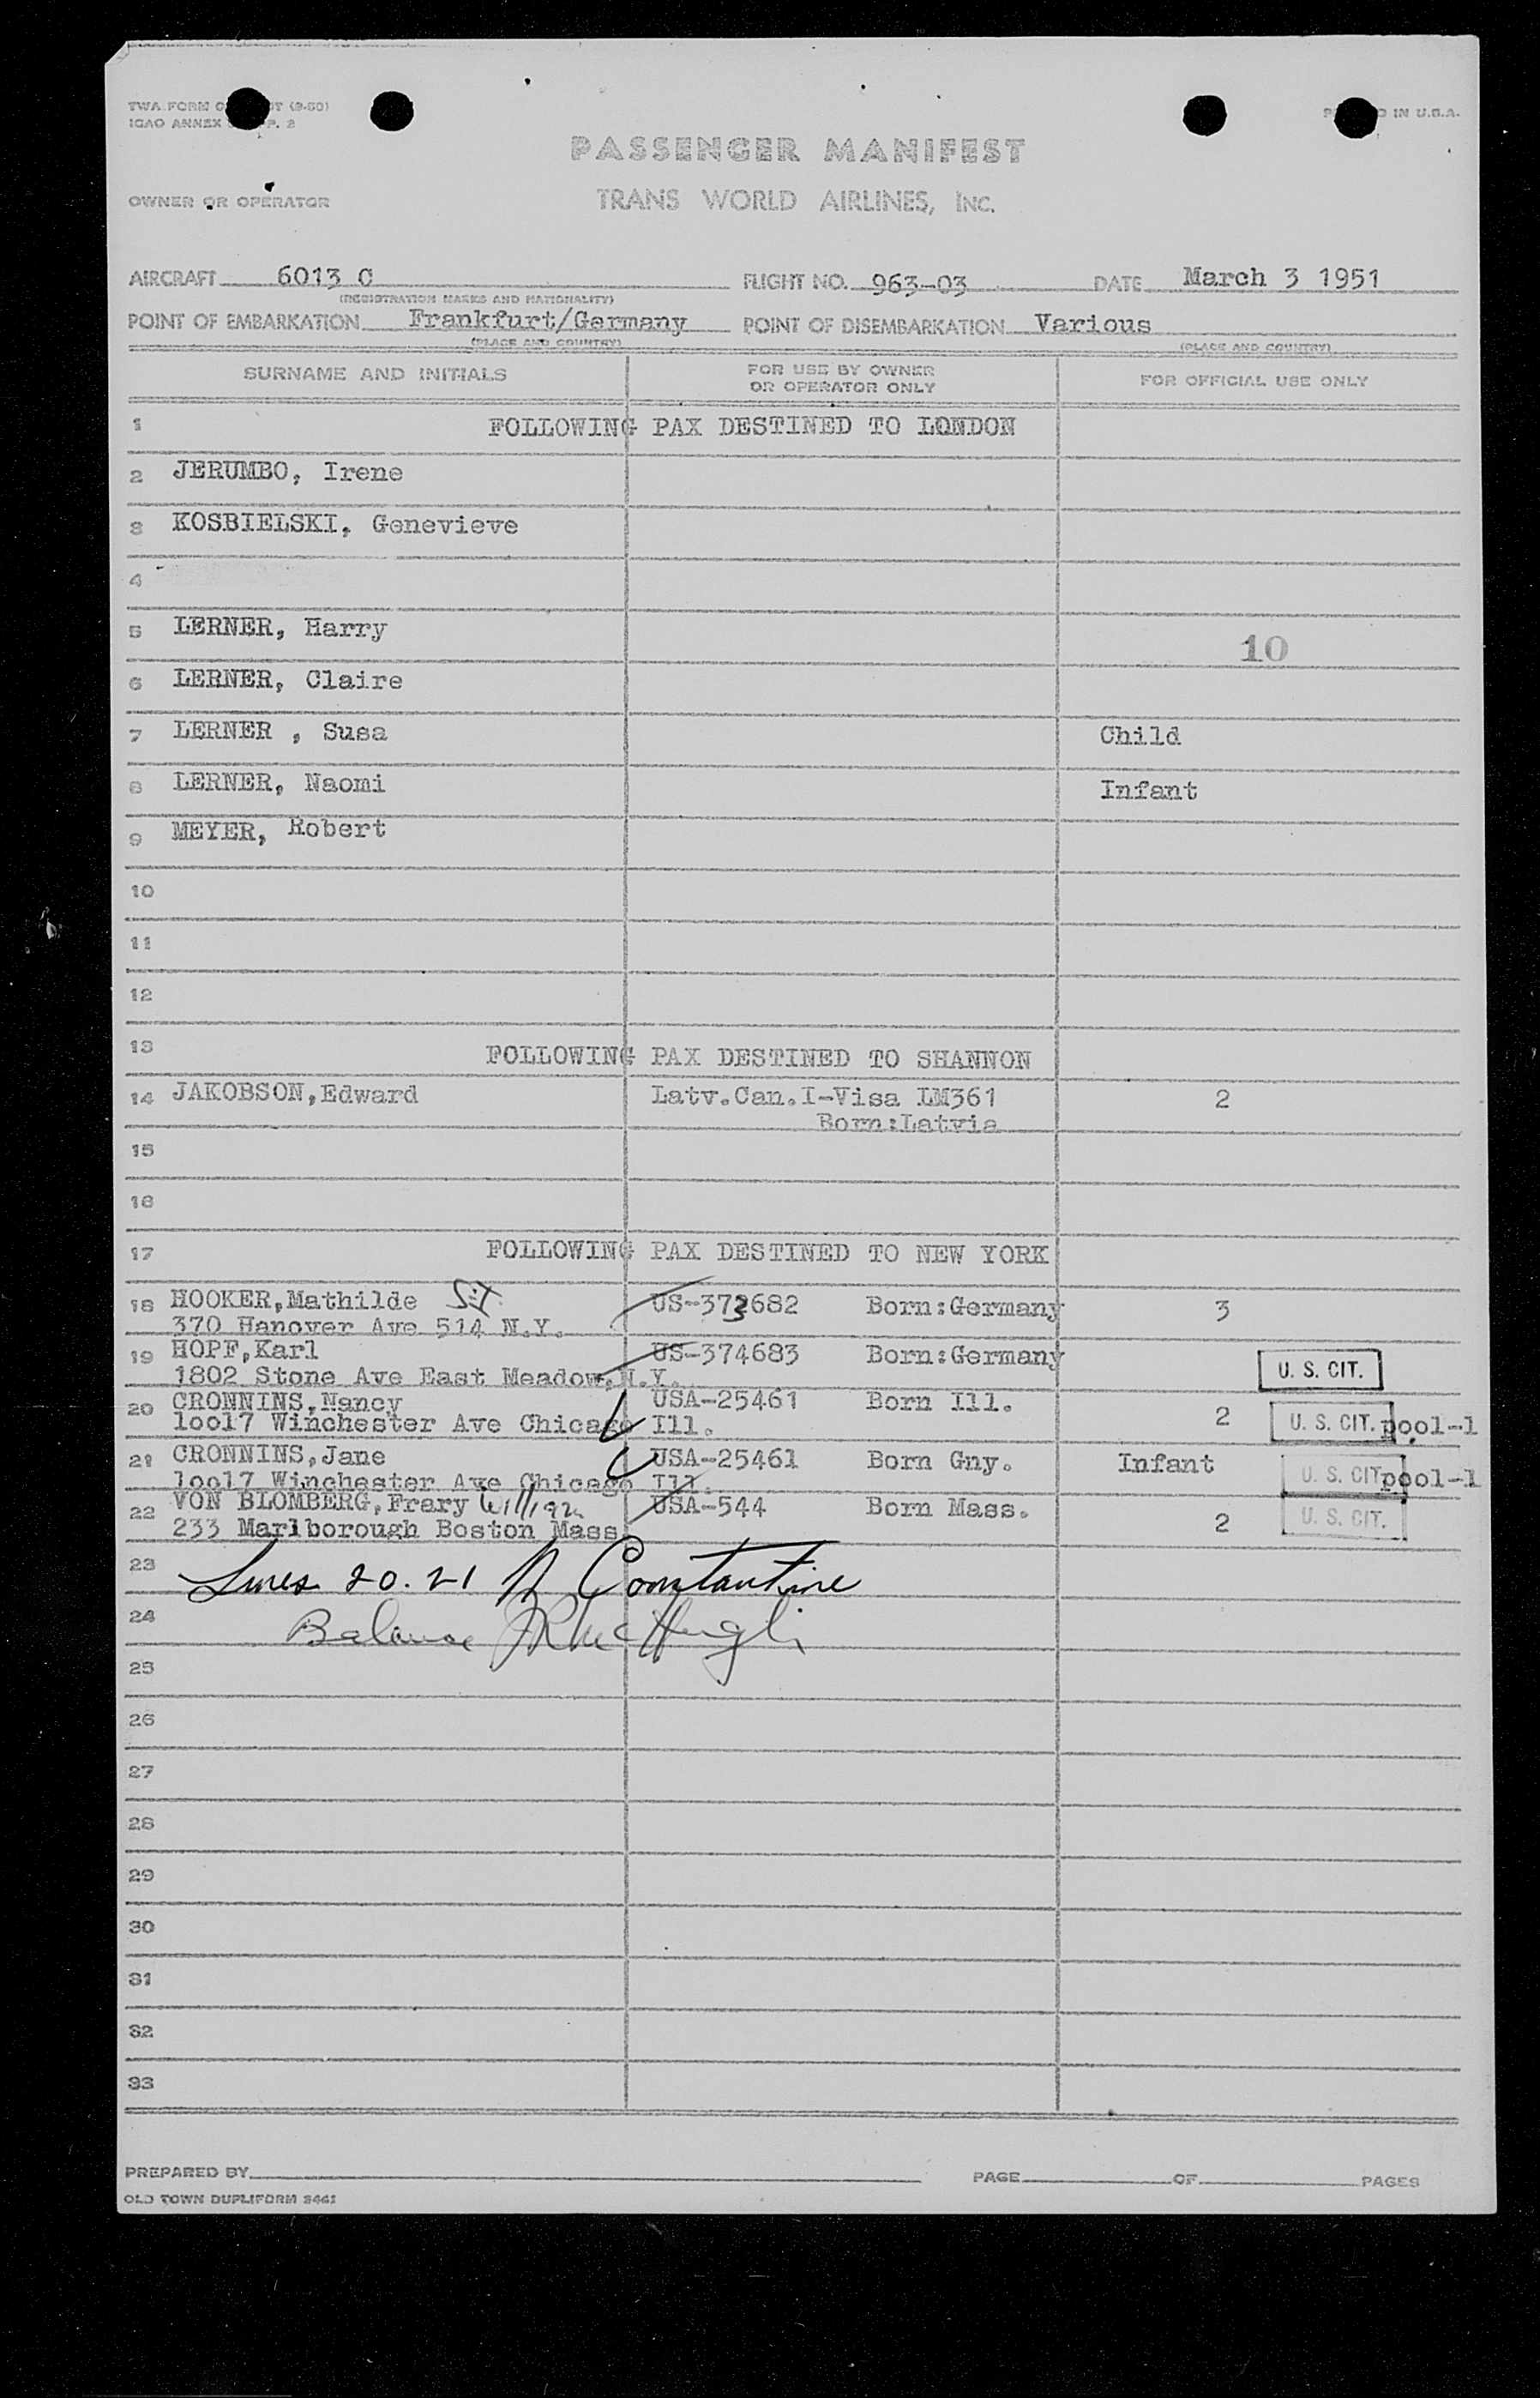 TWA FORM
IN U.S.A.
ICAO ANNEX
PASSENGER MANIFEST
OWNER OR OPERATOR
TRANS WORLD AIRLINES, INC.
AIRCRAFT 6013 C FLIGHT NO. 963-03 DATE March 3 1951
(REGISTRATION MARKS AND NATIONALITY)
POINT OF EMBARKATION Frankfurt/Germany POINT OF DISEMBARKATION Various
(PLACE AND COUNTRY) (PLACE AND COUNTRY)
SURNAME AND INITIALS FOR USE BY OWNER OR OPERATOR ONLY FOR OFFICIAL USE ONLY
1 FOLLOWING PAX DESTINED TO LONDON
2 JERUMBO, Irene
3 KOSBIELSKI, Genevieve
4
5 LERNER, Harry
10
6 LERNER, Claire
7 LERNER , Susa Child
8 LERNER, Naomi Infant
9 MEYER, Robert
10
11
12
13 FOLLOWING PAX DESTINED TO SHANNON
14 JAKOBSON,Edward Latv.Can.I-Visa LM361 2
Born:Latvia
15
16
17 FOLLOWING PAX DESTINED TO NEW YORK
18 HOOKER,Mathilde US-373682 Born:Germany 3
370 Hanover Ave 514 N.Y.
19 HOPF,Karl US-374683 Born:Germany U. S. CIT.
1802 Stone Ave East Meadow,N.Y.
20 CRONNINS,Nancy USA-25461 Born Ill. 2 U. S. CIT. pool-1
10017 Winchester Ave Chicago Ill.
21 CRONNINS,Jane USA-25461 Born Gny. Infant U. S. CIT. pool-1
10017 Winchester Ave Chicago Ill.
22 VON BLOMBERG,Frary William USA-544 Born Mass. 2 U. S. CIT.
233 Marlborough Boston Mass.
23 Lines 20.21 Constantine
24 Balance JR McHugh
25
26
27
28
29
30
31
32
33
PREPARED BY PAGE OF PAGES
OLD TOWN DUPLIFORM 8461